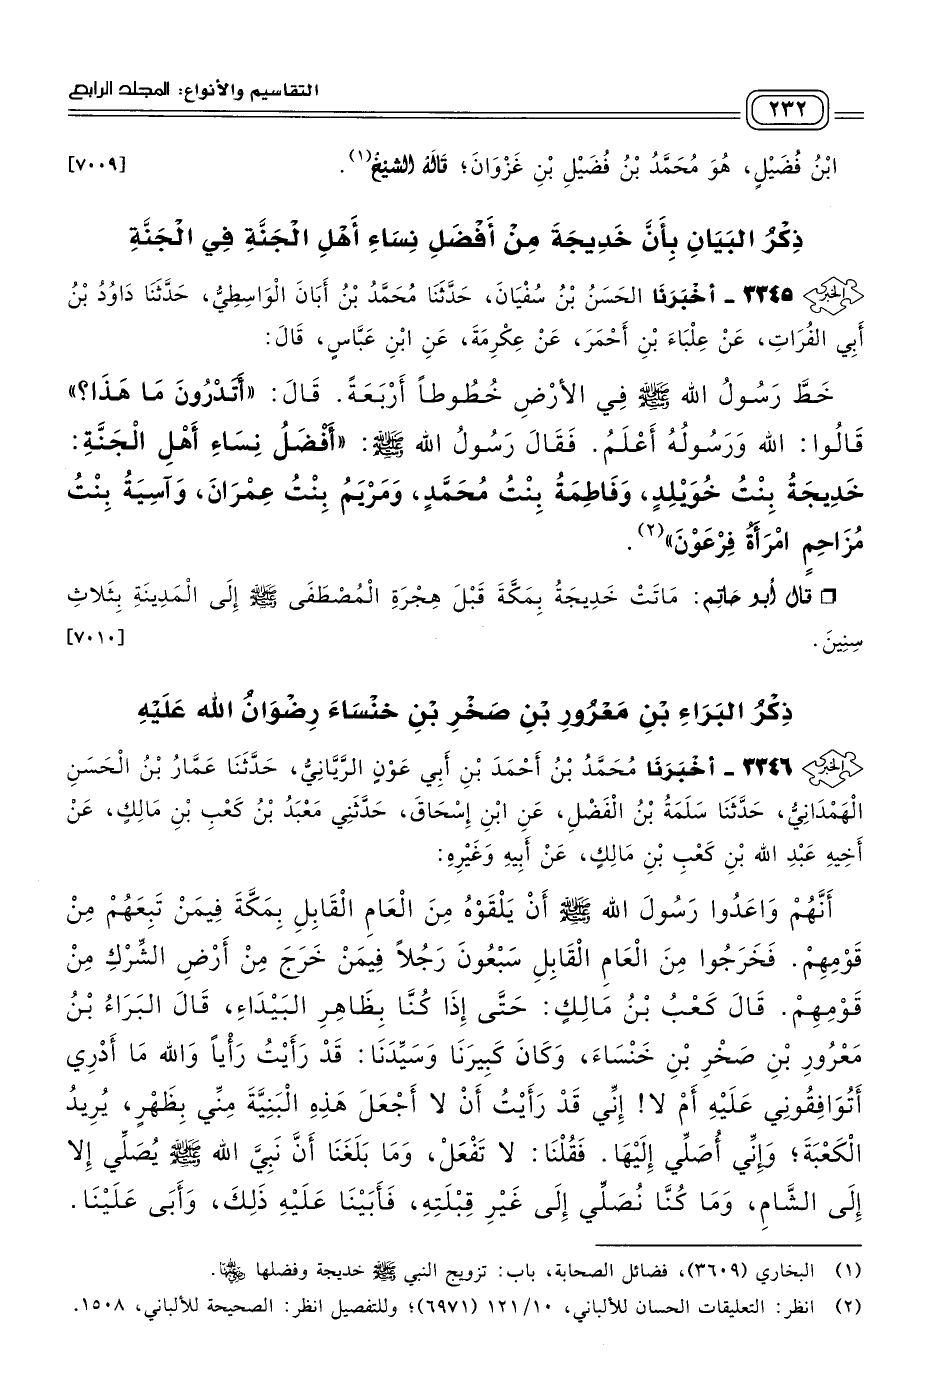 التقاسيم والأنواع: المجلد الرابع
٢٣٢
ابْنُ فُضَيْلٍ، هُوَ مُحَمَّدُ بْنُ فُضَيْلِ بْنِ غَزْوَانَ؛ قَالَهُ الشَّيْخُ(١). [٧٠٠٩]
ذِكْرُ البَيَانِ بِأَنَّ خَدِيجَةَ مِنْ أَفْضَلِ نِسَاءِ أَهْلِ الْجَنَّةِ فِي الْجَنَّةِ
٣٣٤٥ - أَخْبَرَنَا الحَسَنُ بْنُ سُفْيَانَ، حَدَّثَنَا مُحَمَّدُ بْنُ أَبَانَ الْوَاسِطِيُّ، حَدَّثَنَا دَاوُدُ بْنُ
أَبِي الفُرَاتِ، عَنْ عِلْبَاءَ بْنِ أَحْمَرَ، عَنْ عِكْرِمَةَ، عَنِ ابْنِ عَبَّاسٍ، قَالَ:
خَطَّ رَسُولُ الله ﷺ فِي الأَرْضِ خُطُوطاً أَرْبَعَةً. قَالَ: «أَتَدْرُونَ مَا هَذَا؟»
قَالُوا: الله وَرَسُولُهُ أَعْلَمُ. فَقَالَ رَسُولُ الله ﷺ: «أَفْضَلُ نِسَاءِ أَهْلِ الْجَنَّةِ:
خَدِيجَةُ بِنْتُ خُوَيْلِدٍ، وَفَاطِمَةُ بِنْتُ مُحَمَّدٍ، وَمَرْيَمُ بِنْتُ عِمْرَانَ، وَآسِيَةُ بِنْتُ
مُزَاحِمٍ امْرَأَةُ فِرْعَوْنَ»(٢).
❒ قال أبو حاتم: مَاتَتْ خَدِيجَةُ بِمَكَّةَ قَبْلَ هِجْرَةِ الْمُصْطَفَى ﷺ إِلَى الْمَدِينَةِ بِثَلاثِ
سِنِينَ. [٧٠١٠]
ذِكْرُ البَرَاءِ بْنِ مَعْرُورِ بْنِ صَخْرِ بْنِ خَنْسَاءَ رِضْوَانُ الله عَلَيْهِ
٣٣٤٦ - أَخْبَرَنَا مُحَمَّدُ بْنُ أَحْمَدَ بْنِ أَبِي عَوْنٍ الرَّيَّانِيُّ، حَدَّثَنَا عَمَّارُ بْنُ الْحَسَنِ
الْهَمْدَانِيُّ، حَدَّثَنَا سَلَمَةُ بْنُ الْفَضْلِ، عَنِ ابْنِ إِسْحَاقَ، حَدَّثَنِي مَعْبَدُ بْنُ كَعْبِ بْنِ مَالِكٍ، عَنْ
أَخِيهِ عَبْدِ الله بْنِ كَعْبِ بْنِ مَالِكٍ، عَنْ أَبِيهِ وَغَيْرِهِ:
أَنَّهُمْ وَاعَدُوا رَسُولَ الله ﷺ أَنْ يَلْقَوْهُ مِنَ الْعَامِ الْقَابِلِ بِمَكَّةَ فِيمَنْ تَبِعَهُمْ مِنْ
قَوْمِهِمْ. فَخَرَجُوا مِنَ الْعَامِ الْقَابِلِ سَبْعُونَ رَجُلاً فِيمَنْ خَرَجَ مِنْ أَرْضِ الشِّرْكِ مِنْ
قَوْمِهِمْ. قَالَ كَعْبُ بْنُ مَالِكٍ: حَتَّى إِذَا كُنَّا بِظَاهِرِ البَيْدَاءِ، قَالَ البَرَاءُ بْنُ
مَعْرُورِ بْنِ صَخْرِ بْنِ خَنْسَاءَ، وَكَانَ كَبِيرَنَا وَسَيِّدَنَا: قَدْ رَأَيْتُ رَأْياً وَالله مَا أَدْرِي
أَتُوَافِقُونِي عَلَيْهِ أَمْ لا! إِنِّي قَدْ رَأَيْتُ أَنْ لا أَجْعَلَ هَذِهِ الْبَنِيَّةَ مِنِّي بِظَهْرٍ، يُرِيدُ
الْكَعْبَةَ؛ وَإِنِّي أُصَلِّي إِلَيْهَا. فَقُلْنَا: لا تَفْعَلْ، وَمَا بَلَغَنَا أَنَّ نَبِيَّ الله ﷺ يُصَلِّي إِلا
إِلَى الشَّامِ، وَمَا كُنَّا نُصَلِّي إِلَى غَيْرِ قِبْلَتِهِ، فَأَبَيْنَا عَلَيْهِ ذَلِكَ، وَأَبَى عَلَيْنَا.
(١) البخاري (٣٦٠٩)، فضائل الصحابة، باب: تزويج النبي ﷺ خديجة وفضلها رضي الله عنها.
(٢) انظر: التعليقات الحسان للألباني، ١٠/ ١٢١ (٦٩٧١)؛ وللتفصيل انظر: الصحيحة للألباني، ١٥٠٨.